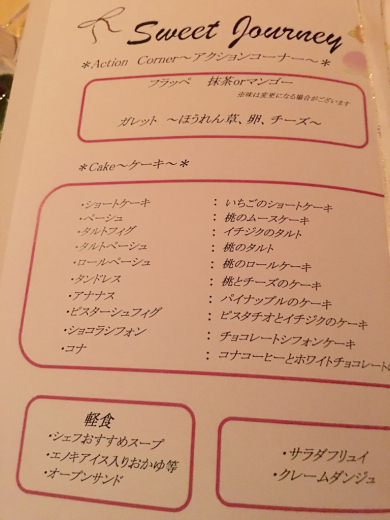 Sweet Journey
＊Action Corner～アクションコーナー～＊
フラッペ 抹茶orマンゴー
※味は変更になる場合がございます
ガレット ～ほうれん草、卵、チーズ～
＊Cake～ケーキ～＊
・ショートケーキ : いちごのショートケーキ
・ペーシュ : 桃のムースケーキ
・タルトフィグ : イチジクのタルト
・タルトペーシュ : 桃のタルト
・ロールペーシュ : 桃のロールケーキ
・タンドレス : 桃とチーズのケーキ
・アナナス : パイナップルのケーキ
・ピスターシュフィグ : ピスタチオとイチジクのケーキ
・ショコラシフォン : チョコレートシフォンケーキ
・コナ : コナコーヒーとホワイトチョコレートの
軽食
・シェフおすすめスープ
・エノキアイス入りおかゆ等
・オープンサンド
・サラダフリュイ
・クレームダンジュ